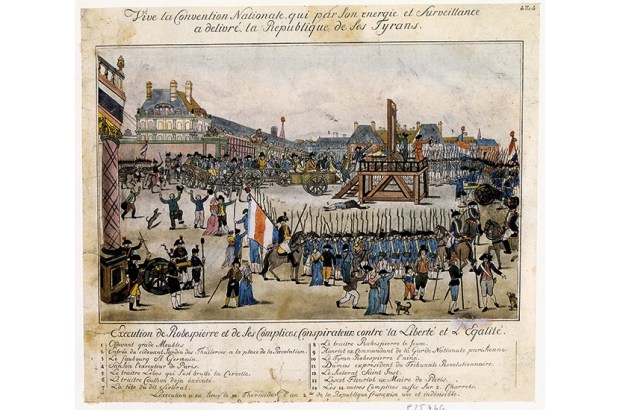 Vive la Convention Nationale, qui par Son energie et Surveillance
a delivré la Republique de Ses Tyrans.
Execution de Robespierre et de Ses Complices, Conspirateurs contre la Liberté et L'Egalité.
1 Cidevant garde Meubles
2 Entrée du cidevant Jardin des Thuilleries a la place de la Revolution.
3 Le fauxbourg St Germain.
4 l'Executeur de Paris.
5 Le traitre qui S'est brulé la Cervelle.
6 Le traitre Couthon deja executé.
7 La tête du dit Scelerat.
8 Le traitre Robespierre le Jeune.
9 Hanriot ex Commandant de la Garde Nationale parisienne
10 Le Tyran Robespierre l'ainé.
11 Dumas expresident du Tribunal Revolutionnaire.
12 Le Scelerat Saint Just.
13 Lescot Fleuriot ex Maire de Paris.
14 Les autres Complices assis Sur 2. Charrets.
L'execution a eu lieu le 10 Thermidor l'an 2me de la Republique française une et indivisible.